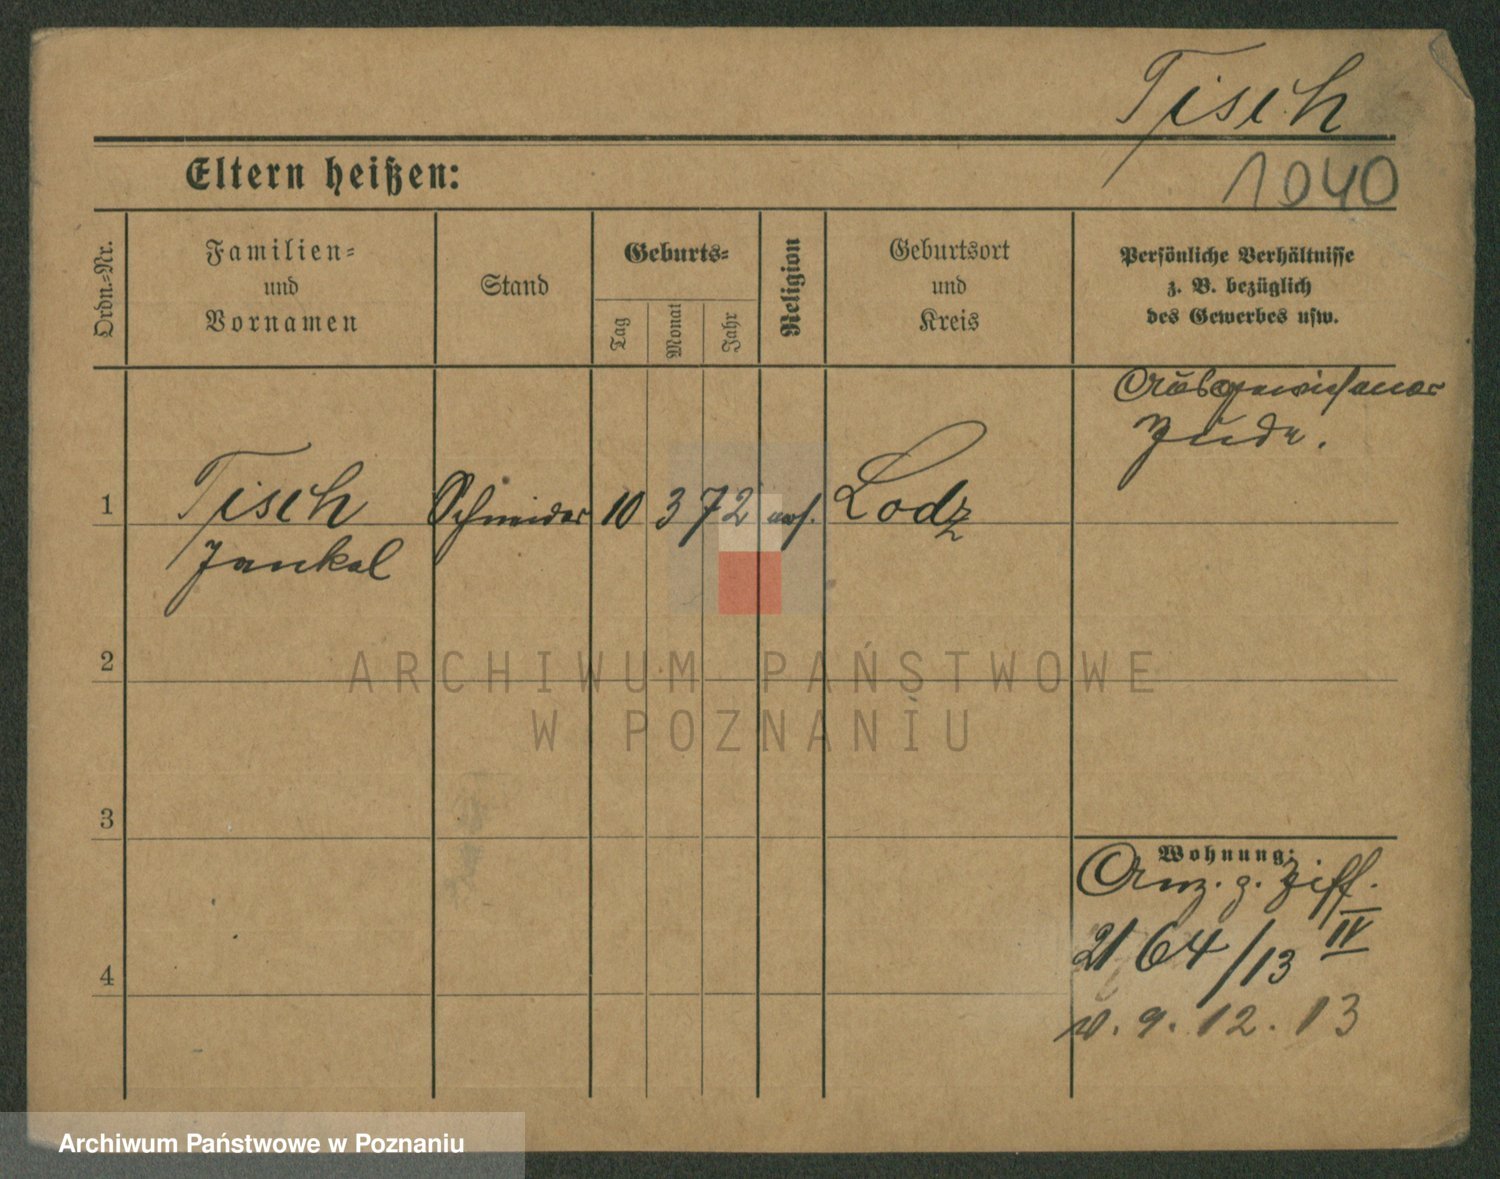 Tisch
Eltern heißen:
1040
Ordn.-Nr.
Familien-
und
Vornamen
Stand
Geburts-
Tag
Monat
Jahr
Religion
Geburtsort
und
Kreis
Persönliche Verhältnisse
z. B. bezüglich
des Gewerbes usw.
Ausgewiesener
Jude.
1
Tisch
Jankel
Schneider
10
3
72
mos.
Lodz
2
3
4
Wohnung:
Anz. z. Ziff.
2164/13 IV
v. 9. 12. 13
ARCHIWUM PAŃSTWOWE
W POZNANIU
Archiwum Państwowe w Poznaniu